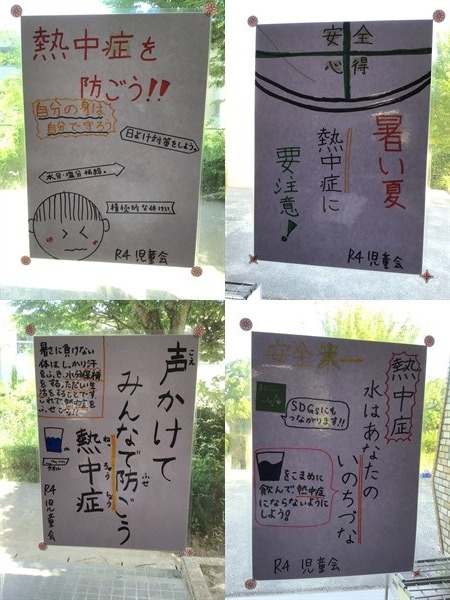 熱中症を
防ごう!!
自分の身は
自分で守ろう
日よけ対策をしよう
水分・塩分補給。
積極的な休けい
R4 児童会
安全
心得
暑い夏
熱中症に
要注意!
R4 児童会
声かけて
こえ
みんなで防ごう
ふせ
熱中症
ねっちゅうしょう
暑さに負けない
体は、しっかり汗
をふき、水分保機
タオル
R4 児童会
安全第一
熱中症
水はあなたの
いのちづな
SDGsにも
つながります!!
をこまめに
飲んで、熱中症
にならないように
しよう!
R4 児童会